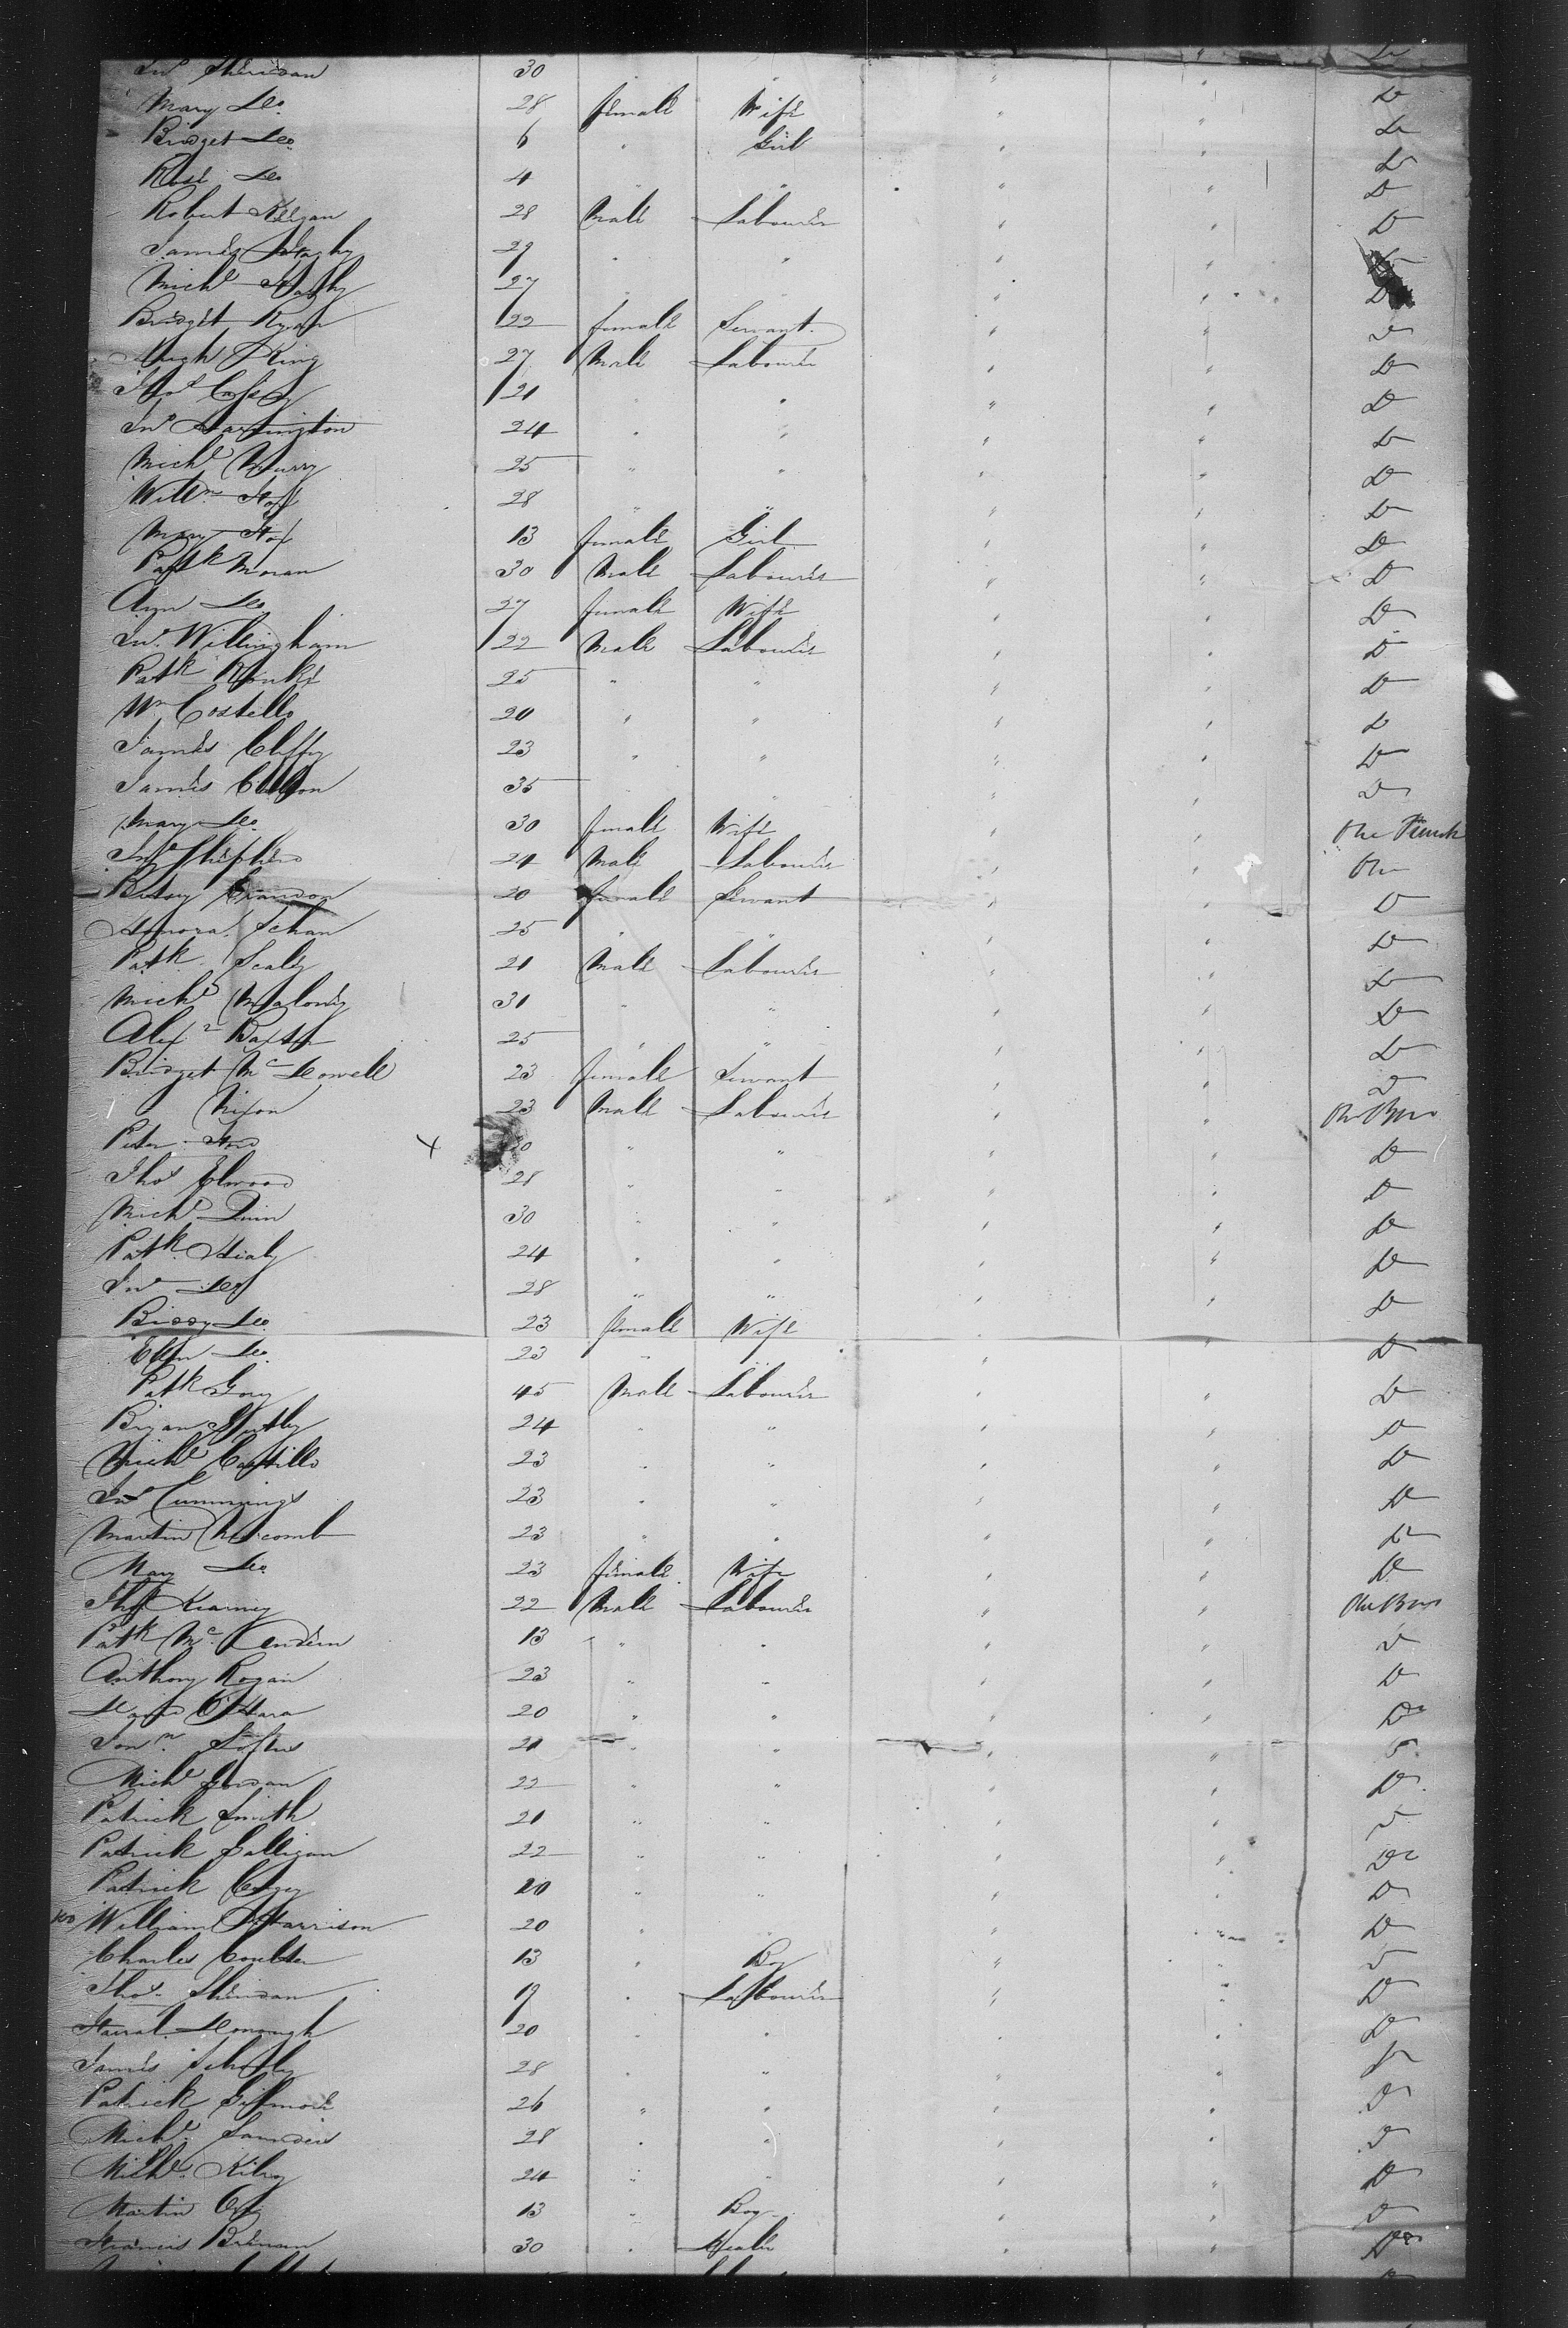 Jno Sheridan 30 " " " Do
Mary Do. 28 female Wife " " Do
Bridget Do. 6 " Girl " " Do
Rose Do 4 " " " " Do
Robert Keegan 28 Male Labourer " " Do
James 29 " " " "
Michl 27 " " " " Do
Bridget Ryan 22 female Servant " " Do
Hugh King 27 Male Labourer " " Do
Thos 21 " " " " Do
Jno Harrington 24 " " " " Do
Michl Murry 25 " " " " Do
Willm 28 " " " " Do
Mary 13 female Girl " " Do
Patk Moran 30 Male Labourer " " Do
Ann Do 27 female Wife " " Do
Jno. Willingham 22 Male Labourer " " Do
Patk 25 " " " " Do
Wm Costello 20 " " " " Do
James Cliffy 23 " " " " Do
James 35 " " " " Do
Mary Do. 30 female Wife " " One Trunk
Jno Shepherd 21 Male Labourer " " One
Betsy 20 female Servant " " Do
Honora 25 " " " " Do
Patk. Scaly 21 Male Labourer " " Do
Michl Malony 31 " " " " Do
Alexr Baxter 25 " " " " Do
Bridget Mc Dowell 23 female Servant " " Do
Nixon 23 Male Labourer " " One Box
Peter Ford X 20 " " " " Do
Thos Elwood 21 " " " " Do
Michl Quin 30 " " " " Do
Patk Healy 24 " " " " Do
Jno Do 28 " " " " Do
Bissy Do. 23 female Wife " " Do
Ellen Do. 23 " " " " Do
Patk Gory 45 Male Labourer " " Do
Bryan 24 " " " " Do
Michl Costillo 23 " " " " Do
Jno Cummings 23 " " " " Do
Martin 23 " " " " Do
Mary Do. 23 female Wife " " Do
Thos Kearney 22 Male Labourer " " One Box
Patk Mc 13 " " " " Do
Anthony Rogan 23 " " " " Do
David O'Hara 20 " " " " Do
Loftus 21 " " " "
Michl Jordan 22 " " " " Do
Patrick Smith 21 " " " " Do
Patrick Galligan 22 " " " " Do
Patrick 20 " " " " Do
William Harrison 20 " " " " Do
Charles Coulter 13 " Boy " " Do
Thos. Sheridan 19 " Labourer " " Do
Donough 20 " " " " Do
James 28 " " " "
Patrick Gilmore 26 " " " " Do
Michl. Saunders 28 " " " " Do
Michl. Kilry 24 " " " " Do
Martin 13 " Boy " " Do
Francis Brenan 30 " " " Do